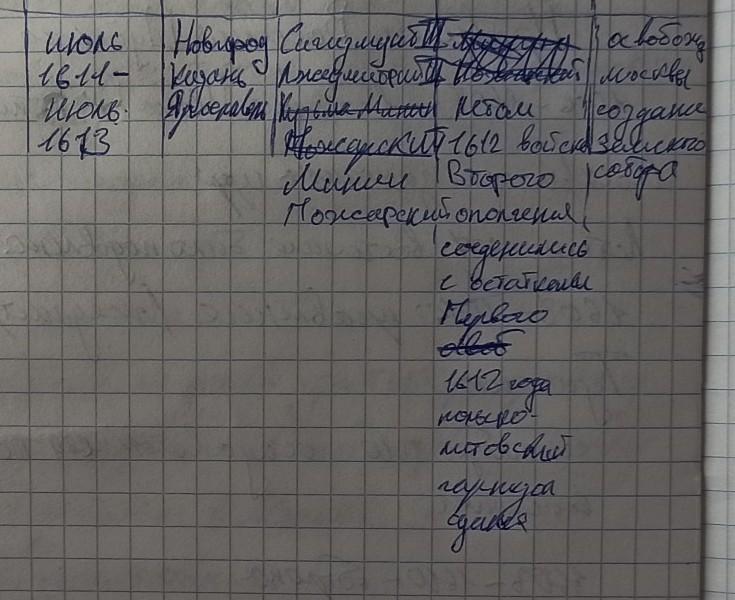 июль
1611-
июль
1613
Новгород
Казань
Ярославль
Сигизмунд III
Лжедмитрий III
Кузьма Минин
Пожарский
Минин
Пожарский
Летом
1612 войска
Второго
ополчения
соеденились
с остатками
Первого
1612 года
польско-
литовский
гарнизон
сдался
освобожд
москвы
создание
земского
собора